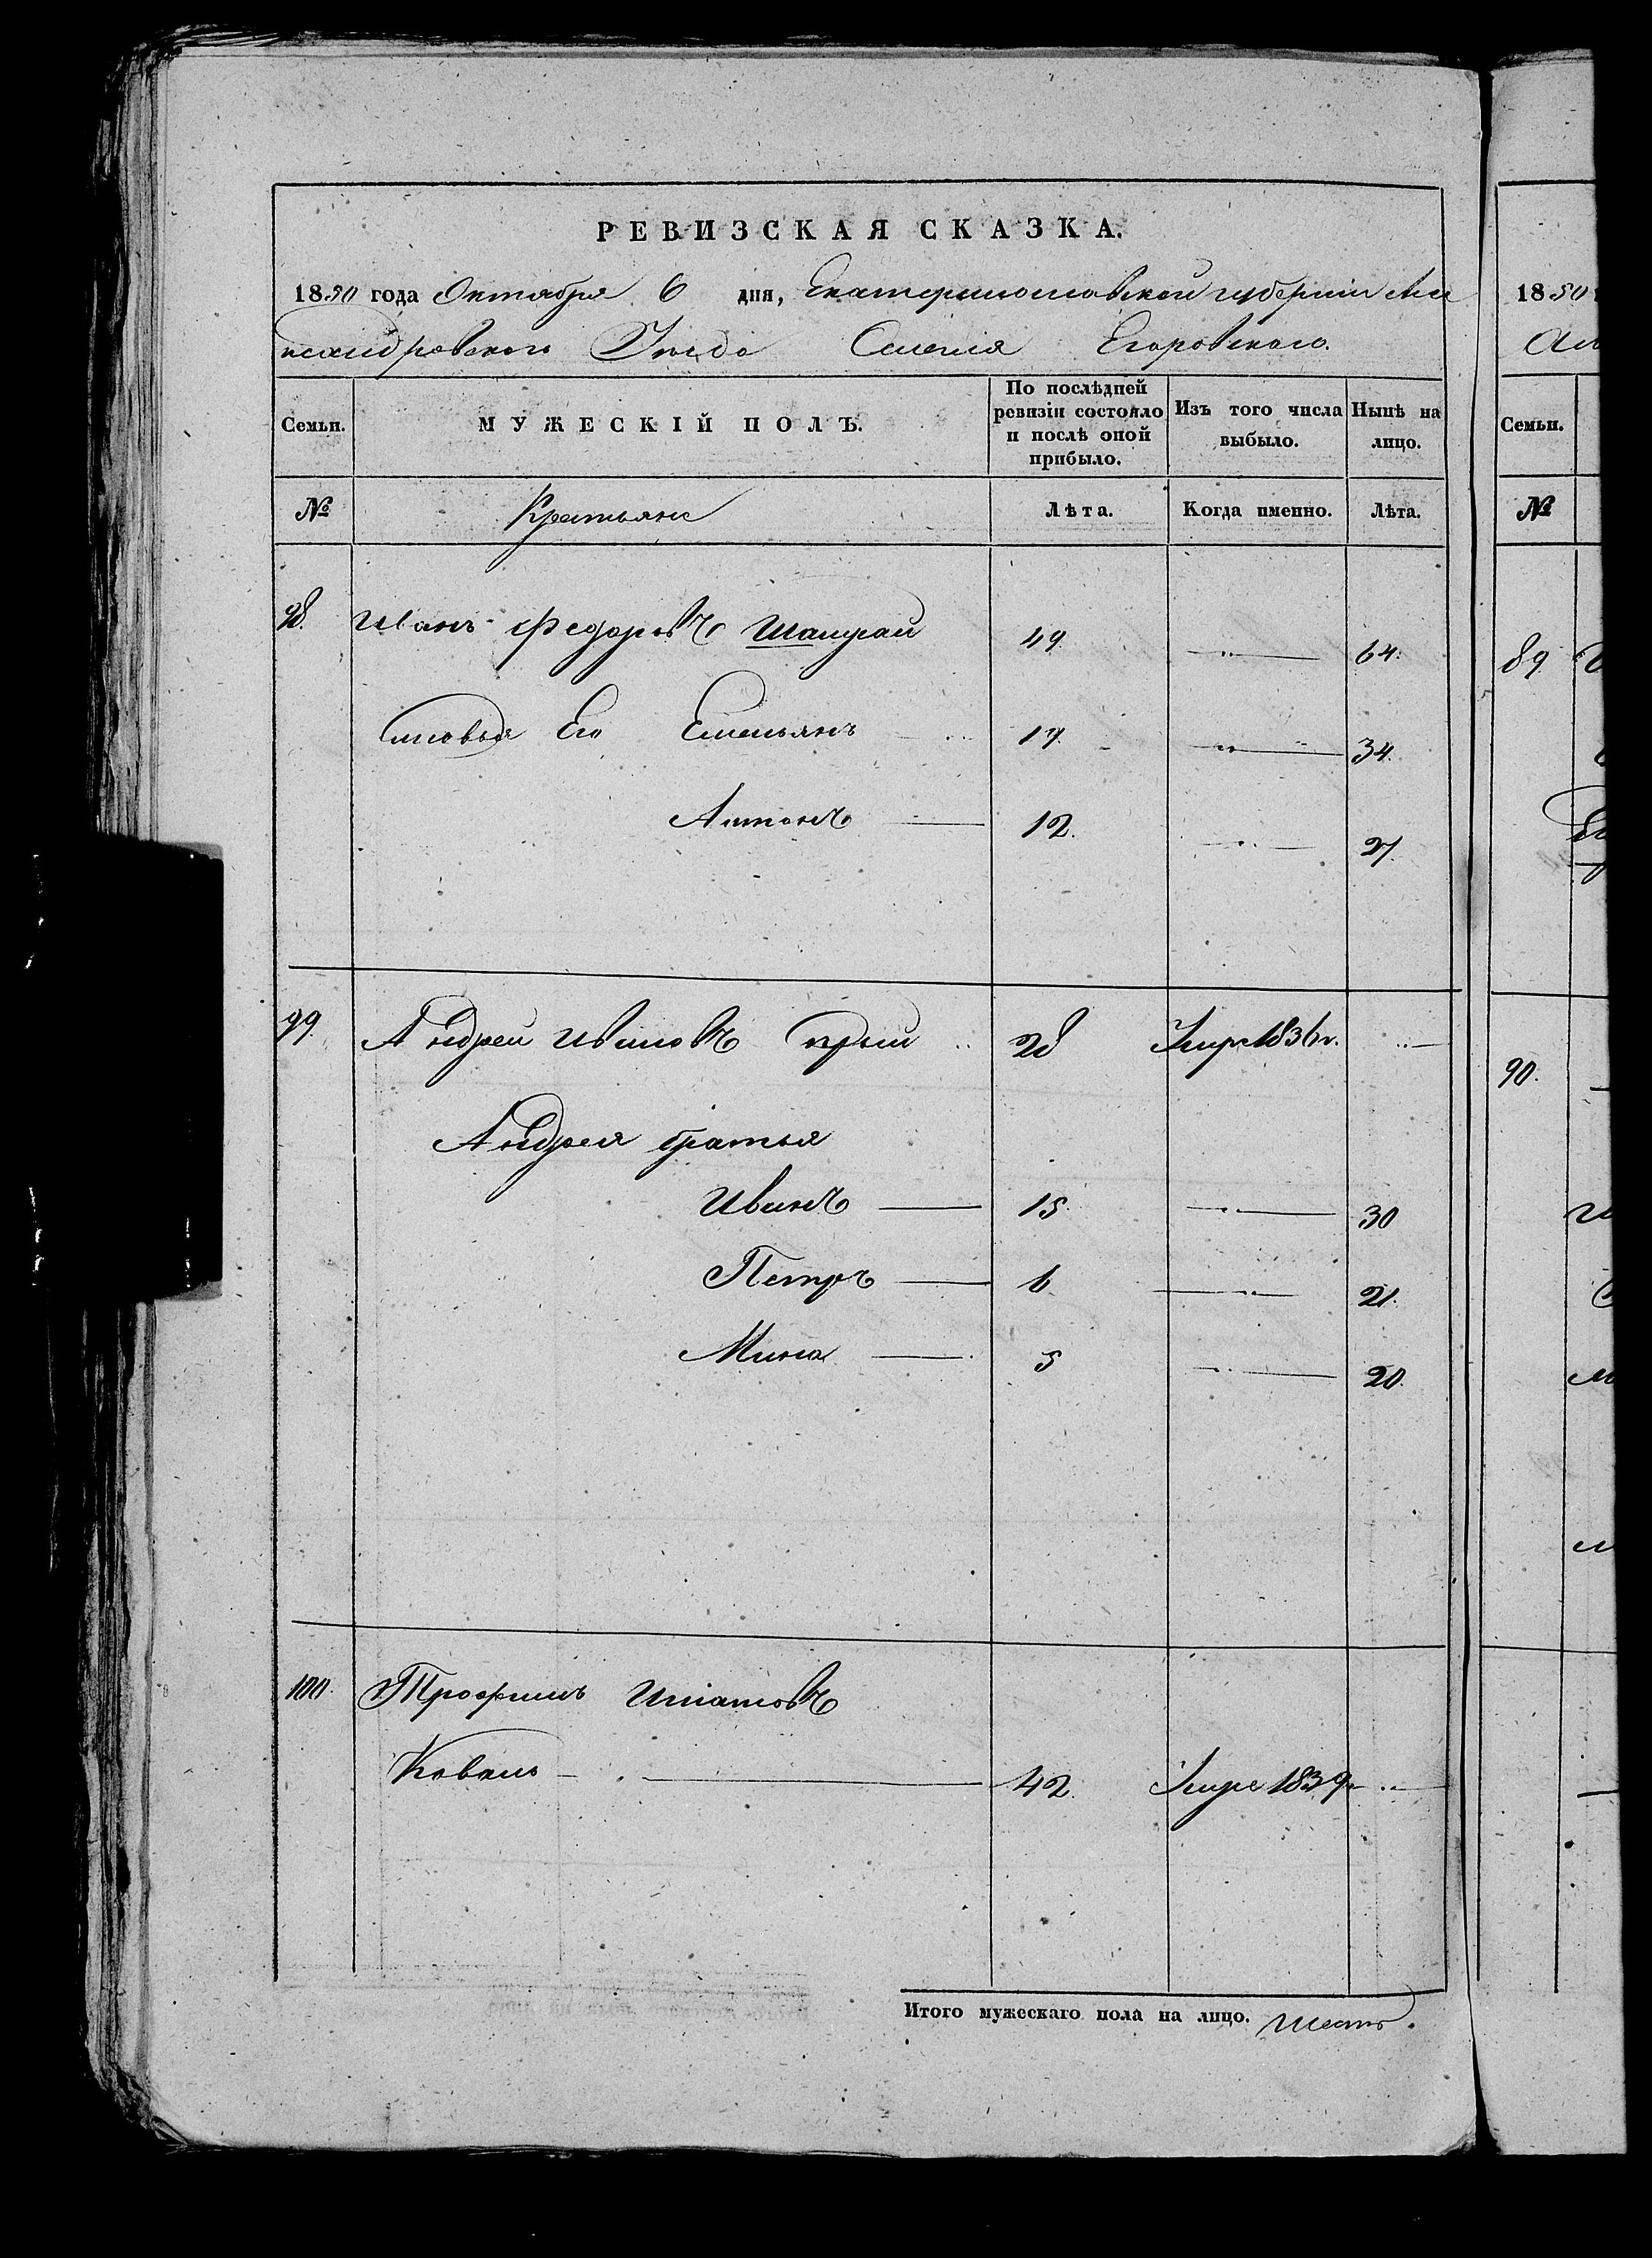 РЕВИЗСКАЯ СКАЗКА.
1850 года Октября 6 дня, Екатеринославской губерніи Але
ксандровского Уезда Селенія Егоровского.
Семьи.
МУЖЕСКІЙ ПОЛЪ.
По послѣдней ревизіи состояло и послѣ оной прибыло.
Изъ того числа выбыло.
Нынѣ на лицо.
№ Крестьяне Лѣта. Когда именно. Лѣта.
98. Иванъ Федоровъ 49. 64.
Сыновья Его Емельянъ 19. 34.
Антонъ 12. 27.
99. Андрей Ивановъ 28 Умре 1836 г.
Андрея братья
Иванъ 15. 30
Петръ 6 21.
Мина 5 20.
100. Трофимъ Игнатовъ
Коваль 42. Умре 1839
Итого мужескаго пола на лицо. Шесть.
1850
Семьи.
№
89
90.